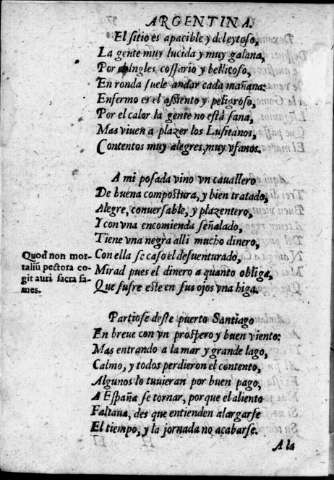 ARGENTINA.
El sitio es apacible y deleytoso,
La gente muy lucida y muy galana,
Por Ingles cossario y bellicoso,
En ronda suele andar cada mañana:
Enfermo es el assiento y peligroso,
Por el calor la gente no està sana,
Mas viuen a plazer los Lusitanos,
Contentos muy alegres, muy vfanos.
A mi posada vino vn cauallero
De buena compostura, y bien tratado,
Alegre, conuersable, y plazentero,
Y con vna encomienda señalado,
Tiene vna negra alli mucho dinero,
Con ella se casò el desuenturado,
Mirad pues el dinero a quanto obliga,
Que sufre este en sus ojos vna higa.
Quod non mor-
taliũ pectora co-
git auri sacra fa-
mes.
Partiose deste puerto Santiago
En breue con vn prospero y buen viento:
Mas entrando a la mar y grande lago,
Calmo, y todos perdieron el contento,
Algunos lo tuuieran por buen pago,
A España se tornar, porque el aliento
Faltaua, des que entienden alargarse
El tiempo, y la jornada no acabarse.
A la